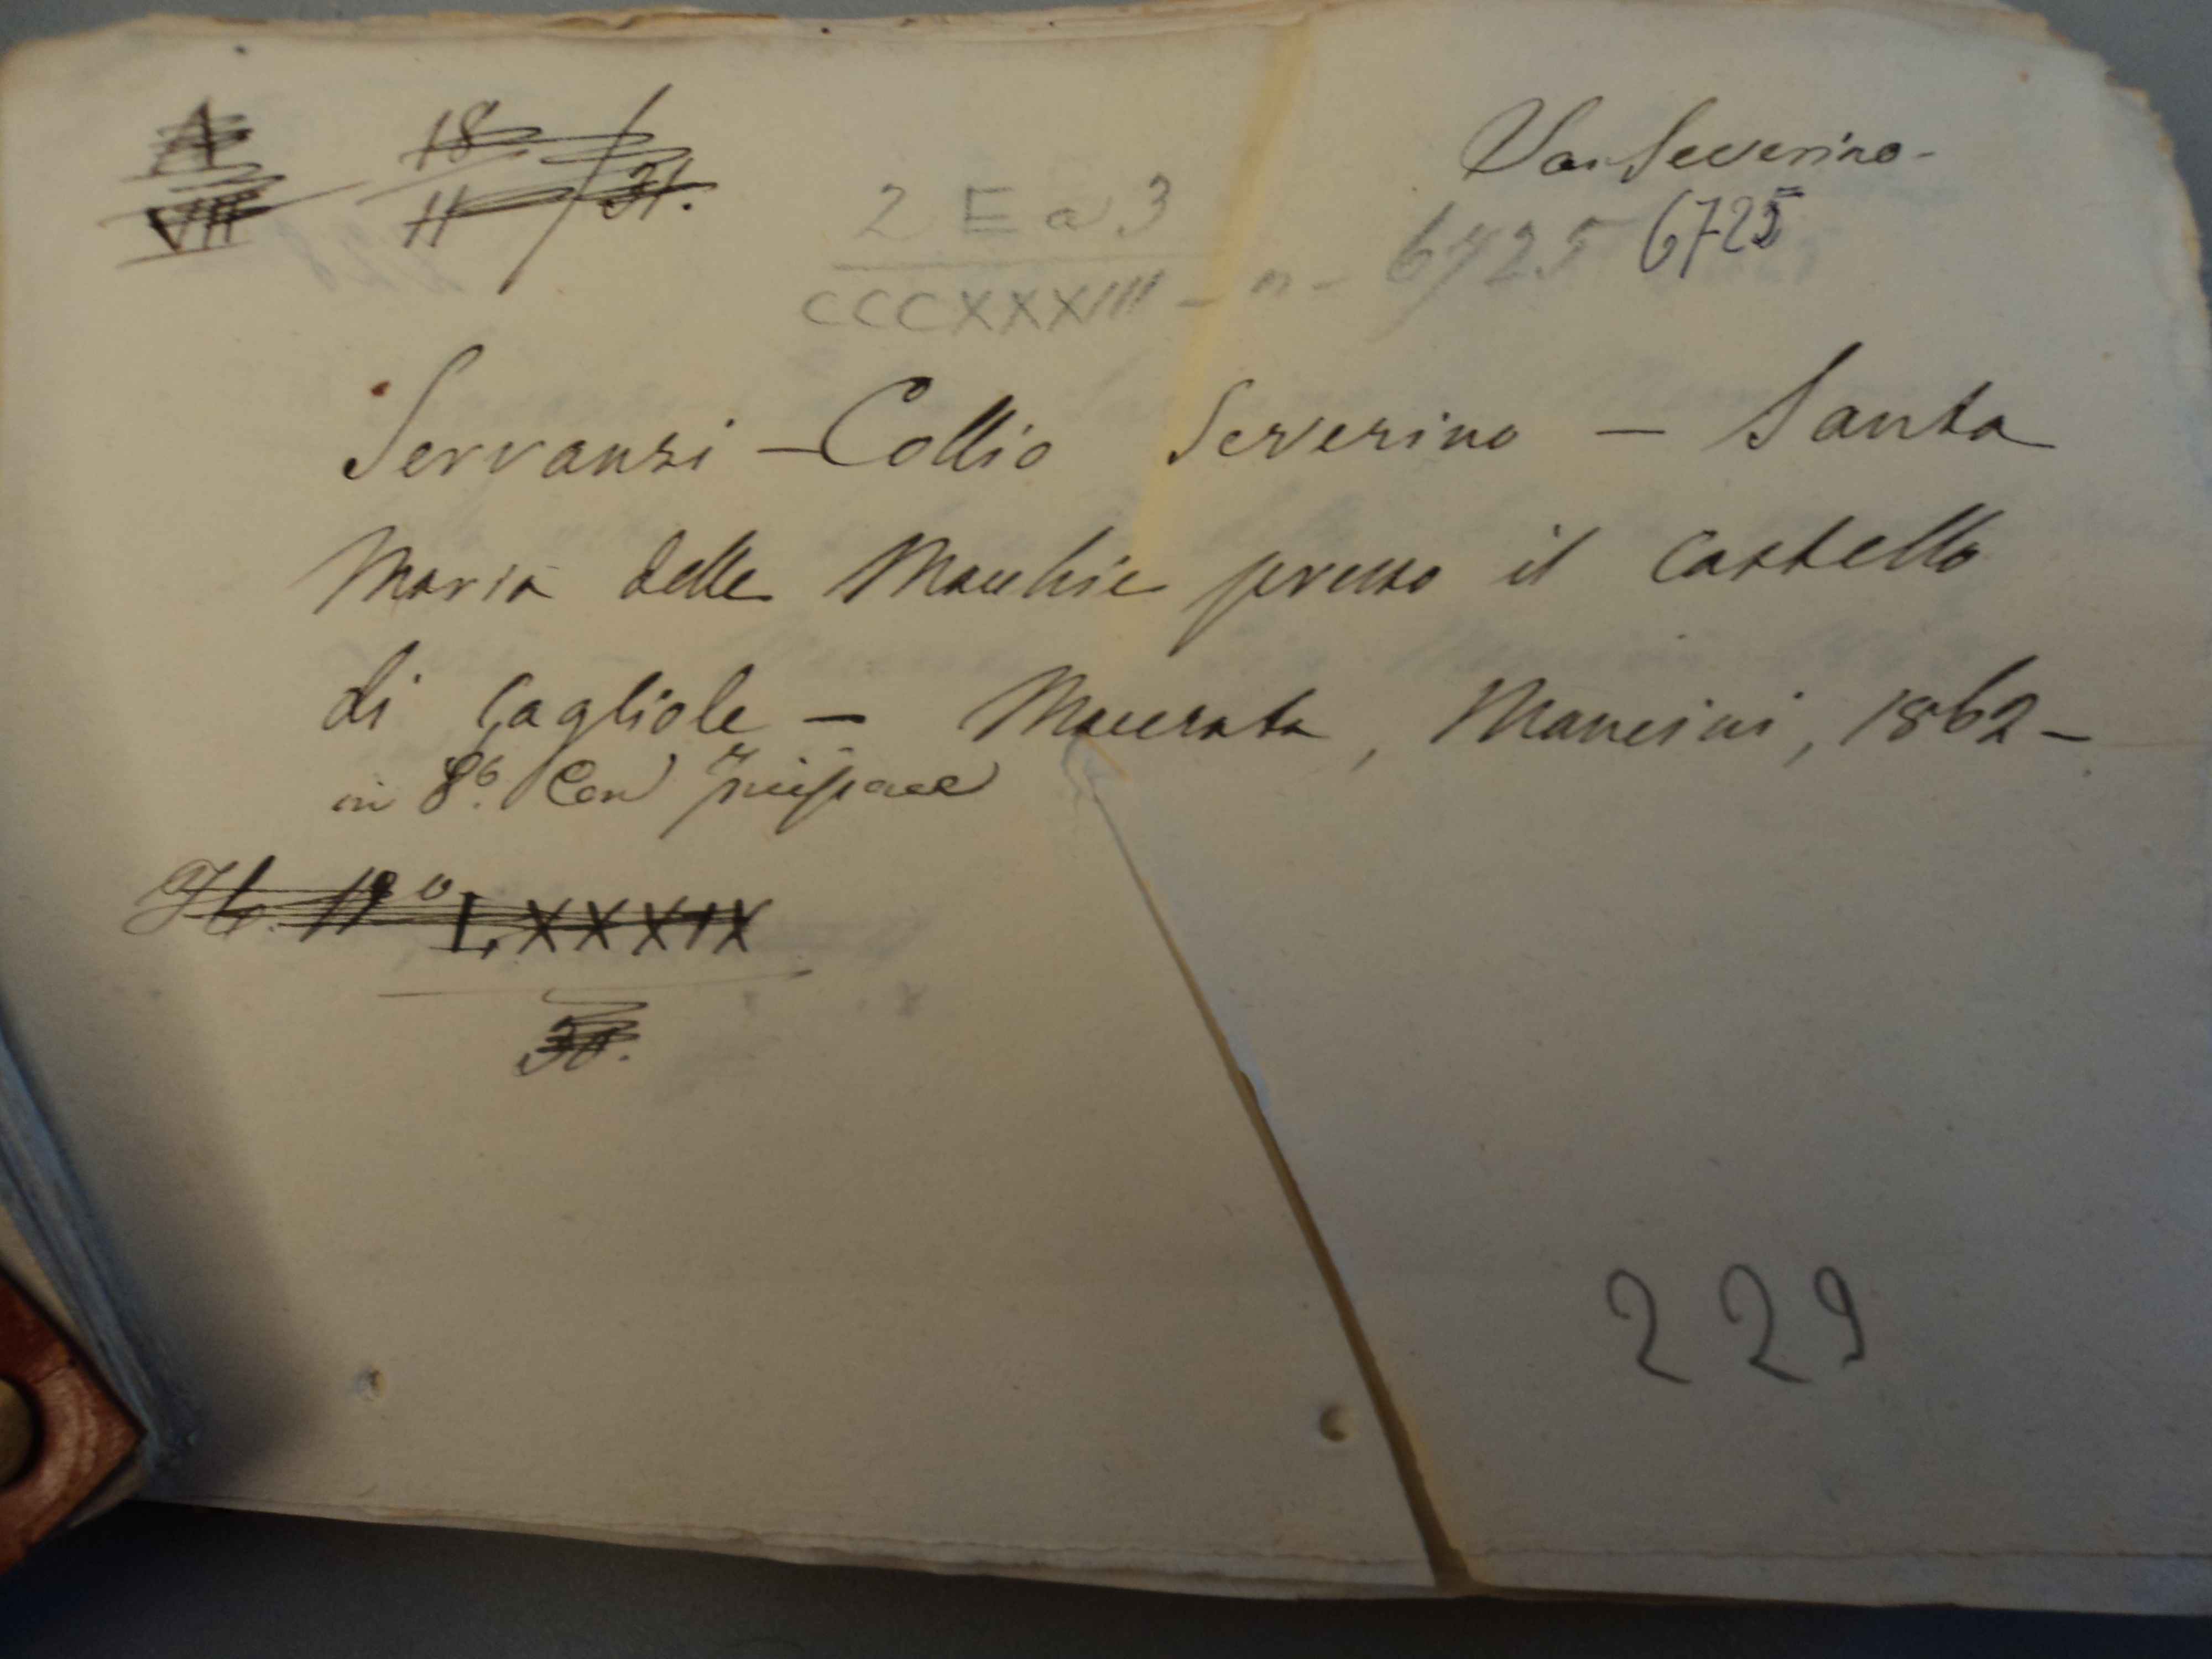 A 18
VIII 11 31.
San Severino -
2 E a 3 6725
CCCXXXIII - n - 6725
Servanzi - Collio Severino - Santa
Maria delle Macchie presso il castello
di Gagliole - Macerata, Mancini, 1862 -
in 8º. Con
LXXXIX
31.
229